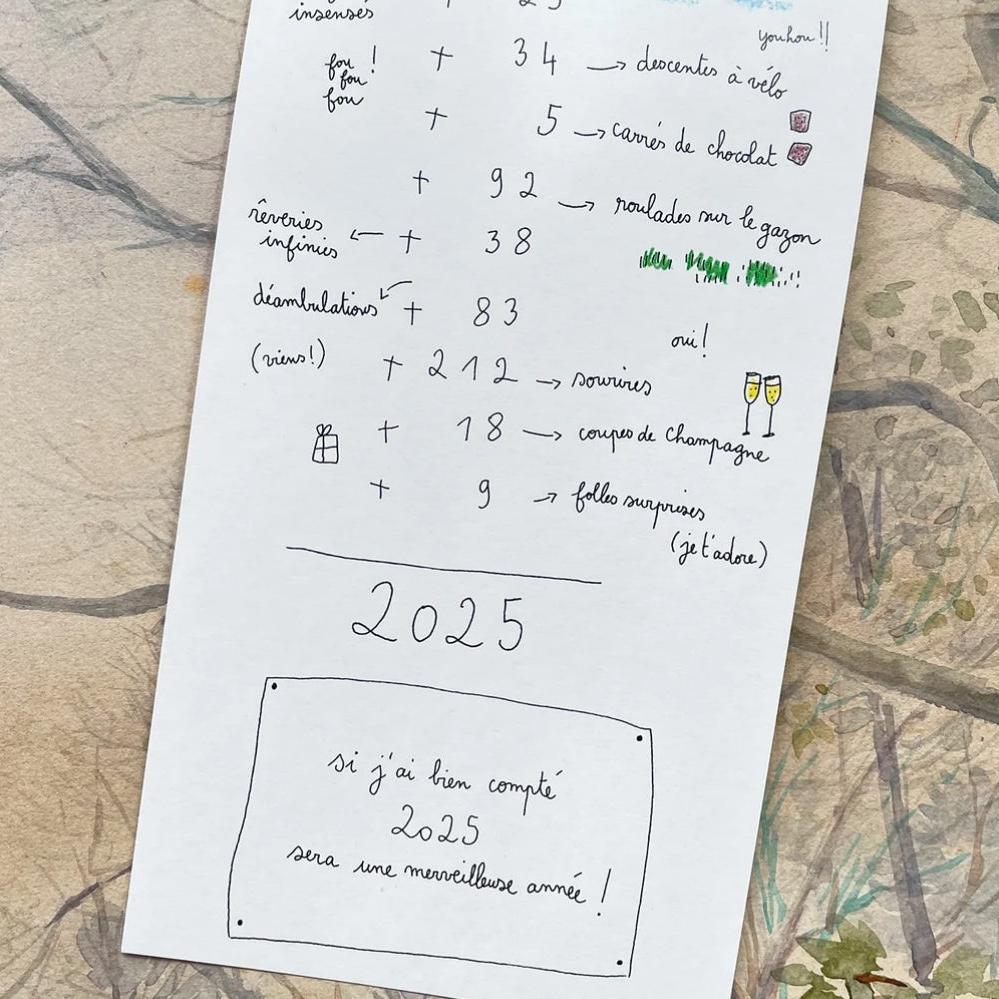 insensés
youhou!!
fou !
fou
fou
+ 34 → descentes à vélo
+ 5 → carrés de chocolat
+ 92 → roulades sur le gazon
rêveries
infinies ← + 38
déambulations + 83
oui!
(viens!)
+ 212 → sourires
+ 18 → coupes de Champagne
+ 9 → folles surprises
(je t'adore)
2025
si j'ai bien compté
2025
sera une merveilleuse année !